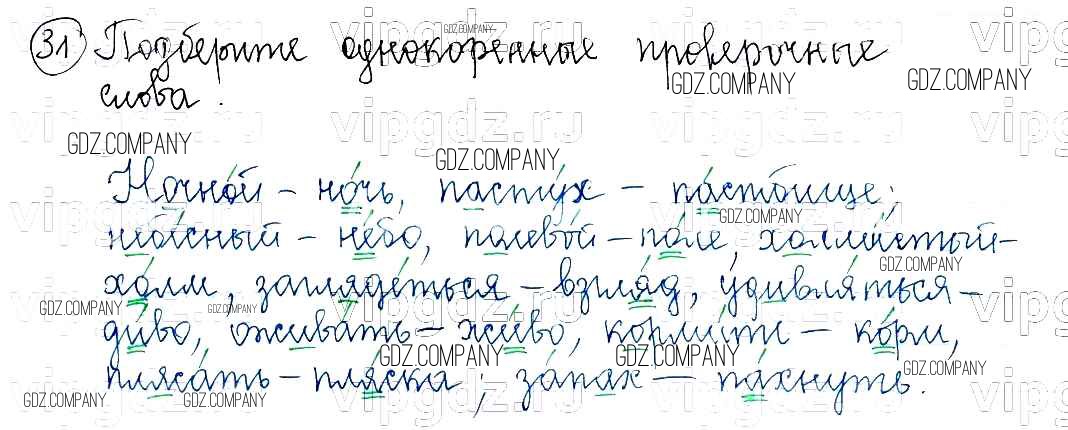 31 Подберите однокоренные проверочные
слова.
Ночной – ночь, пастух – пастбище,
небесный – небо, полевой – поле, холмистый –
холм, заглядеться – взгляд, удивляться –
диво, оживать – живо, кормить – корм,
плясать – пляска, запах – пахнуть.